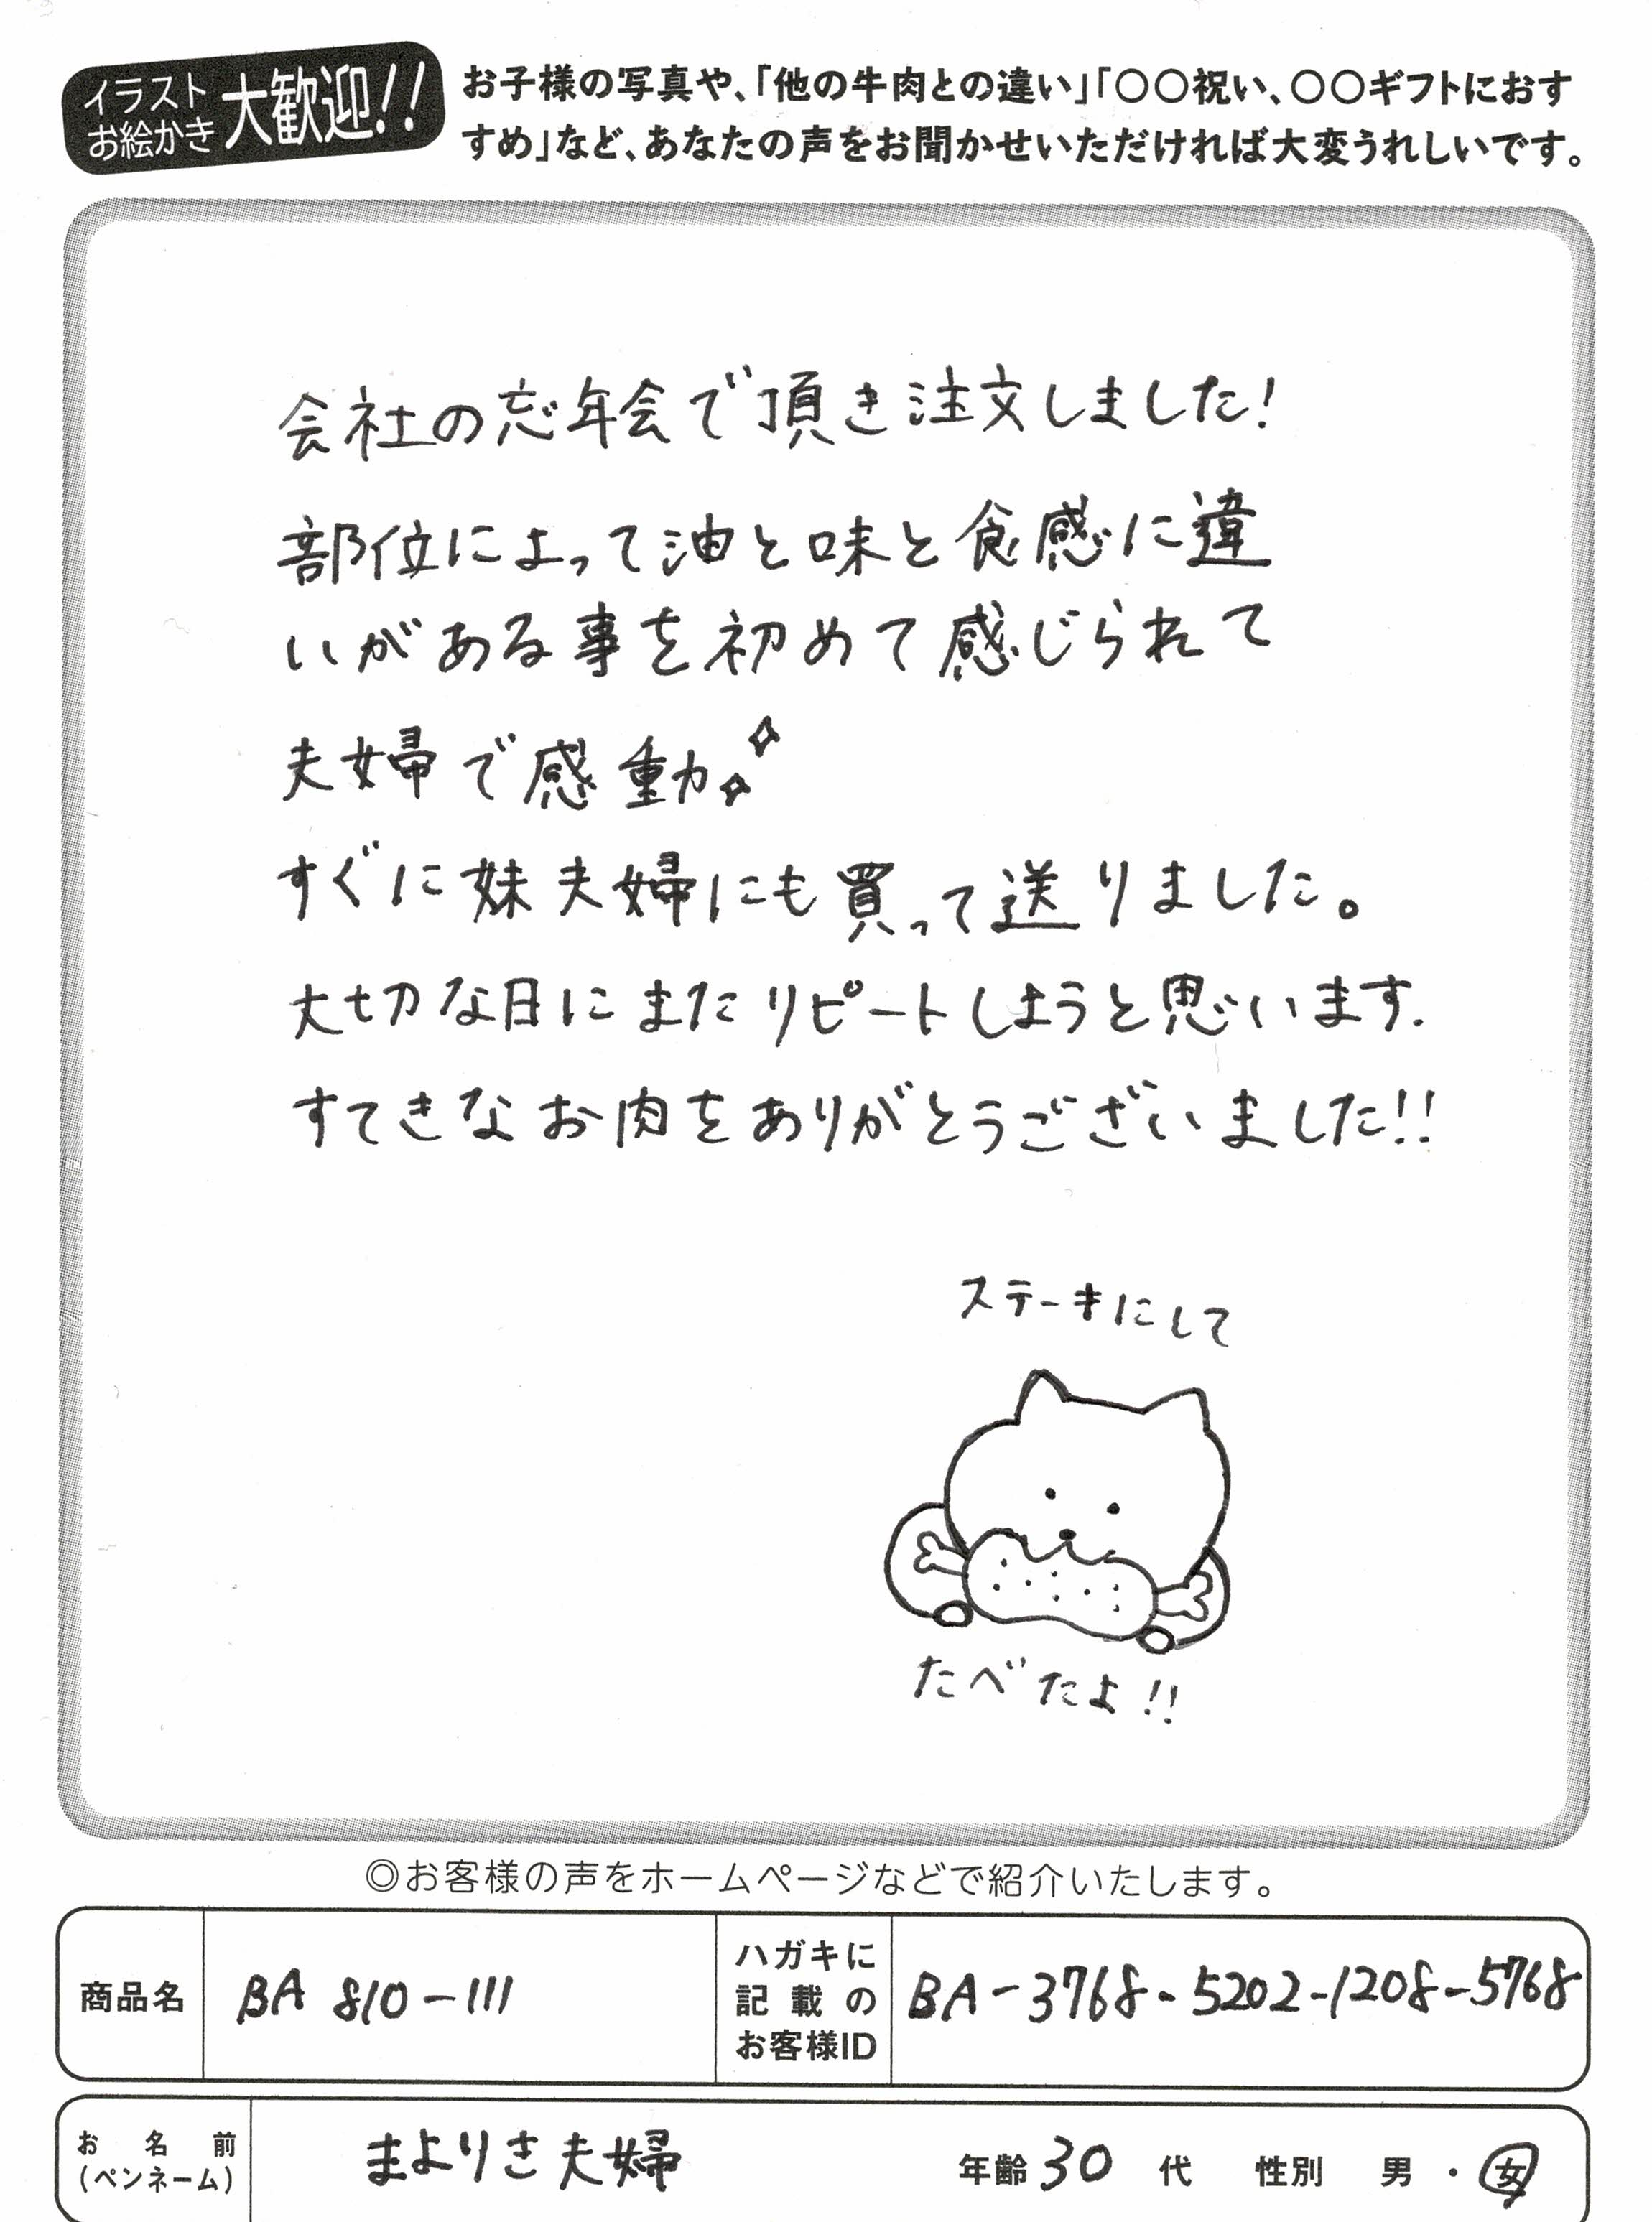 イラスト
お絵かき
大歓迎!!
お子様の写真や、「他の牛肉との違い」「〇〇祝い、〇〇ギフトにおす
すめ」など、あなたの声をお聞かせいただければ大変うれしいです。
会社の忘年会で頂き注文しました!
部位によって油と味と食感に違
いがある事を初めて感じられて
夫婦で感動
すぐに妹夫婦にも買って送りました。
大切な日にまたリピートしようと思います.
すてきなお肉をありがとうございました!!
ステーキにして
たべたよ!!
◎お客様の声をホームページなどで紹介いたします。
商品名
BA 810-111
ハガキに
記載の
お客様ID
BA-3768-5202-1208-5768
お名前
(ペンネーム)
まよりさ夫婦
年齢 30 代 性別 男・女